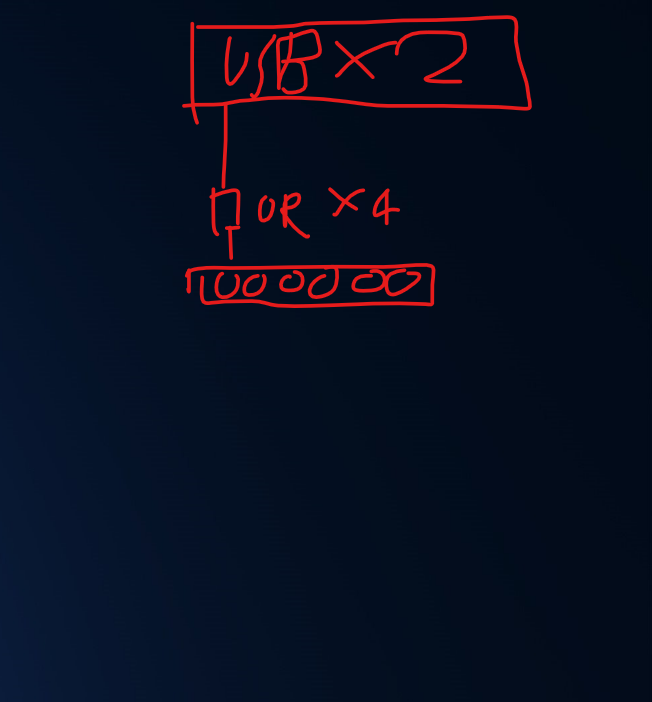 USB × 2
OR × 4
1000000